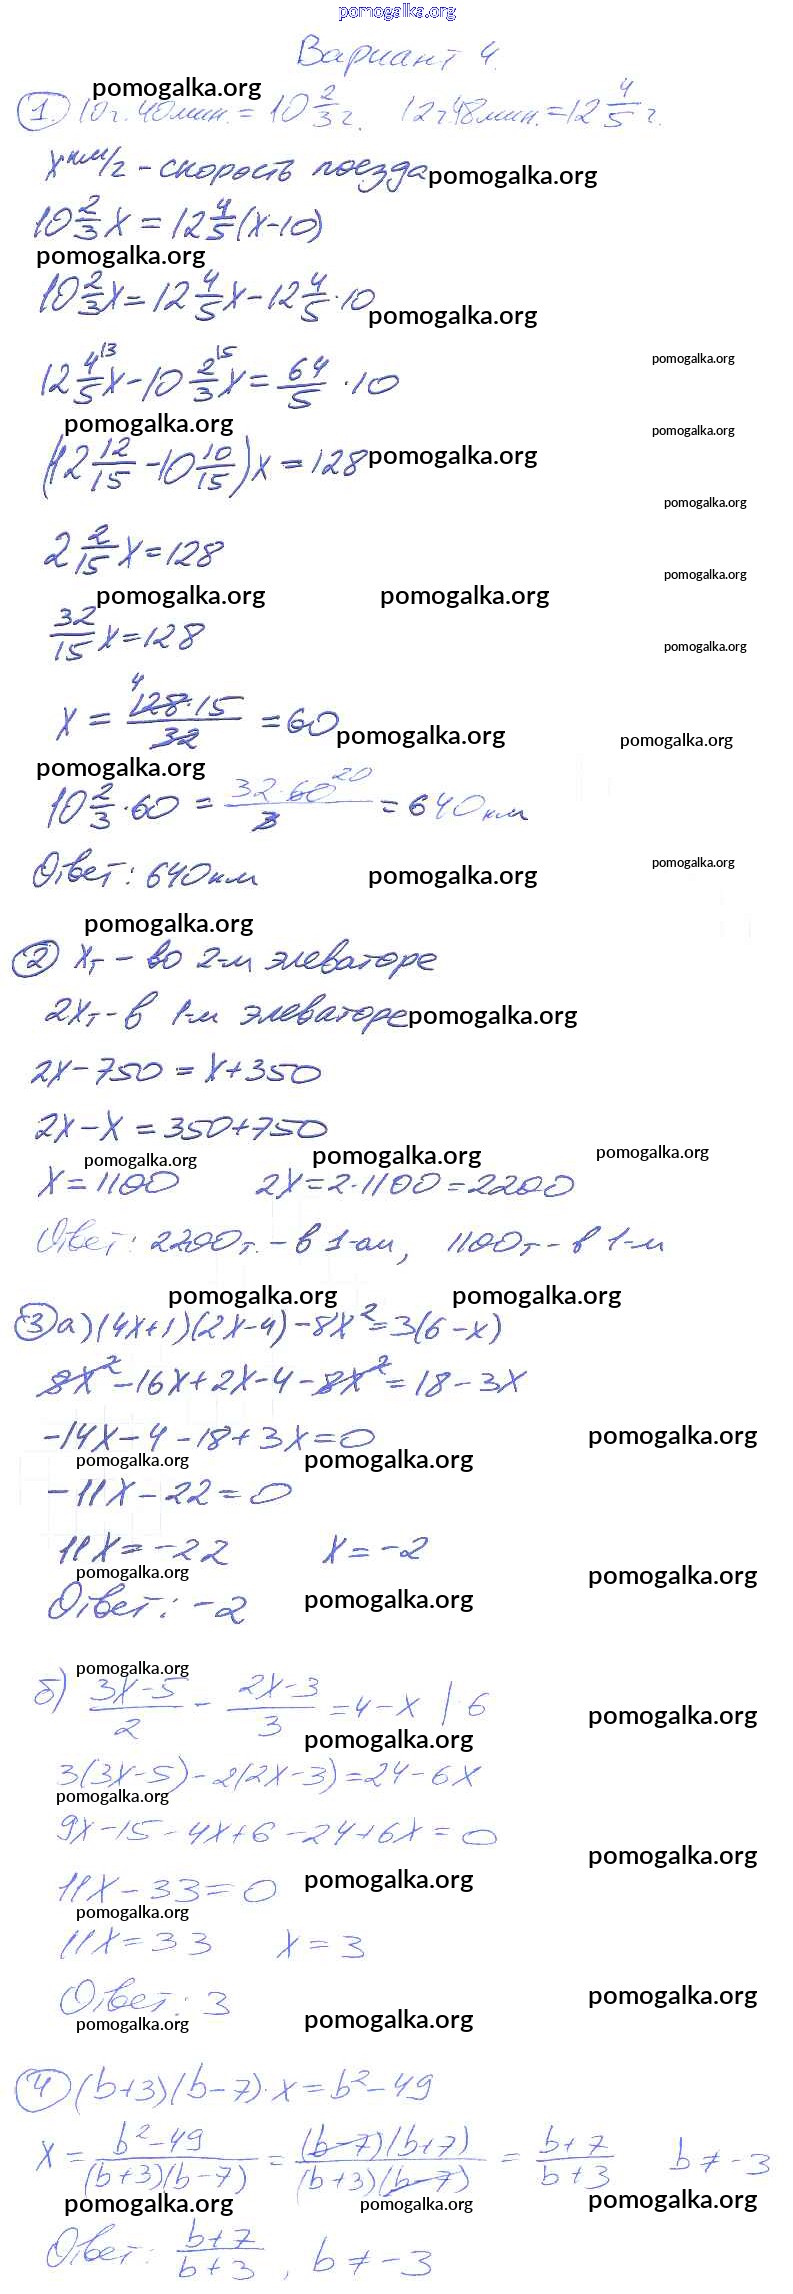 pomogalka.org
Вариант 4.
pomogalka.org
1. 10ч. 40мин. = 10 2/3 ч. 12ч.48мин. = 12 4/5 ч.
x км/ч - скорость поезда pomogalka.org
10 2/3 x = 12 4/5 (x-10)
pomogalka.org
10 2/3 x = 12 4/5 x - 12 4/5 · 10 pomogalka.org
pomogalka.org
12 4/5 ^13 x - 10 2/3 ^15 x = 64/5 · 10
pomogalka.org pomogalka.org
(12 12/15 - 10 10/15) x = 128 pomogalka.org
pomogalka.org
2 2/15 x = 128
pomogalka.org pomogalka.org pomogalka.org
32/15 x = 128 pomogalka.org
x = 128·15/32 = 60 pomogalka.org pomogalka.org
4
pomogalka.org
10 2/3 · 60 = 32·60/3 = 640 км
20
Ответ: 640 км pomogalka.org pomogalka.org
pomogalka.org
2 xт - во 2-м элеваторе
2xт - в 1-м элеваторе pomogalka.org
2x - 750 = x + 350
2x - x = 350 + 750
pomogalka.org pomogalka.org pomogalka.org
x = 1100 2x = 2·1100 = 2200
Ответ: 2200т. - в 1-ом, 1100т - в 1-м
pomogalka.org pomogalka.org
3 а) (4x+1)(2x-4) - 8x² = 3(6-x)
8x² - 16x + 2x - 4 - 8x² = 18 - 3x
-14x - 4 - 18 + 3x = 0 pomogalka.org
pomogalka.org pomogalka.org
-11x - 22 = 0
11x = -22 x = -2
pomogalka.org pomogalka.org pomogalka.org
Ответ: -2
pomogalka.org
б) 3x-5/2 - 2x-3/3 = 4-x | 6 pomogalka.org
pomogalka.org
3(3x-5) - 2(2x-3) = 24 - 6x
pomogalka.org
9x - 15 - 4x + 6 - 24 + 6x = 0 pomogalka.org
11x - 33 = 0 pomogalka.org
pomogalka.org
11x = 33 x = 3
Ответ: 3 pomogalka.org
pomogalka.org pomogalka.org
4 (b+3)(b-7)·x = b² - 49
x = b²-49/(b+3)(b-7) = (b-7)(b+7)/(b+3)(b-7) = b+7/b+3 b ≠ -3
pomogalka.org pomogalka.org pomogalka.org
Ответ: b+7/b+3, b ≠ -3